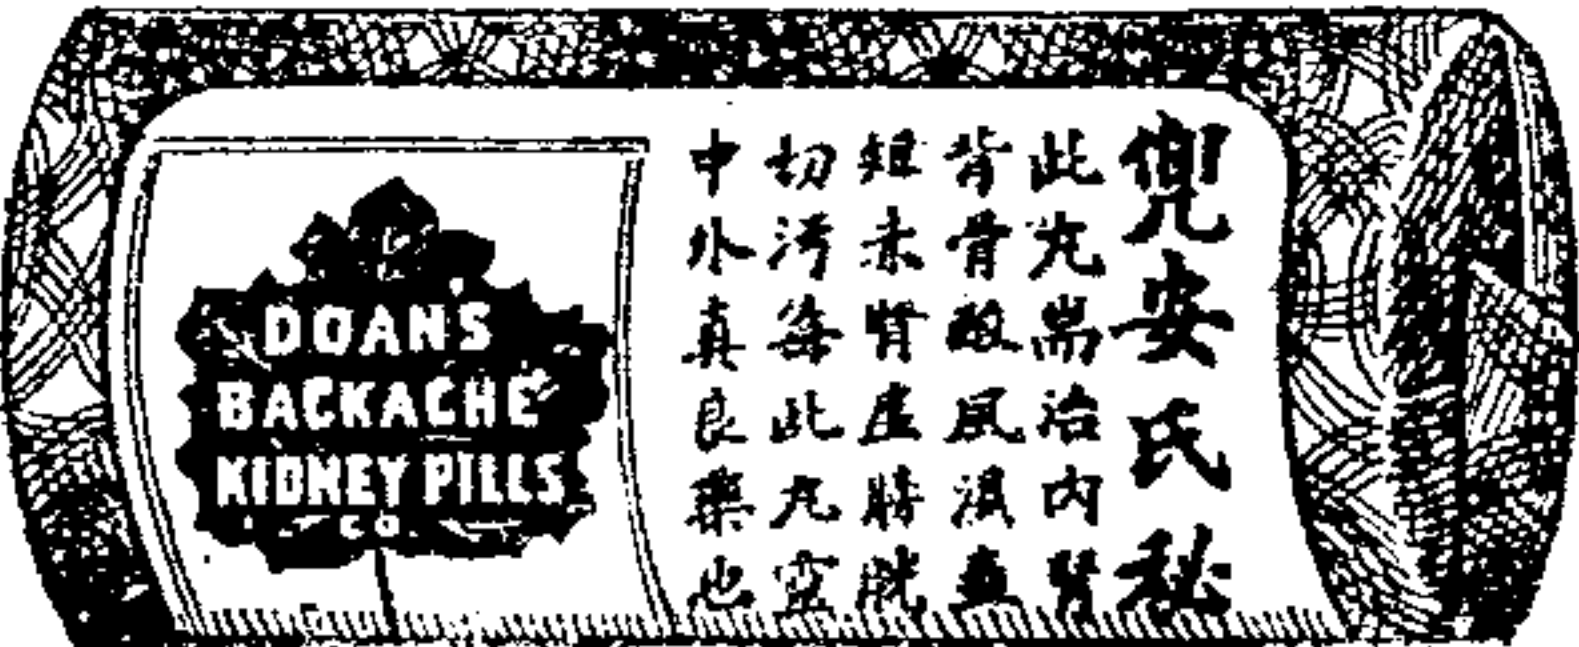 DOAN'S
BACKACHE
KIDNEY PILLS
CO.
兜安氏秘
此丸耑治內腎
背骨酸風濕血
短赤腎虛膀胱
切污毒此丸宲
中外真良藥也